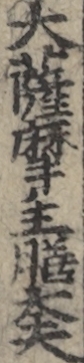 大薩摩主膳太夫